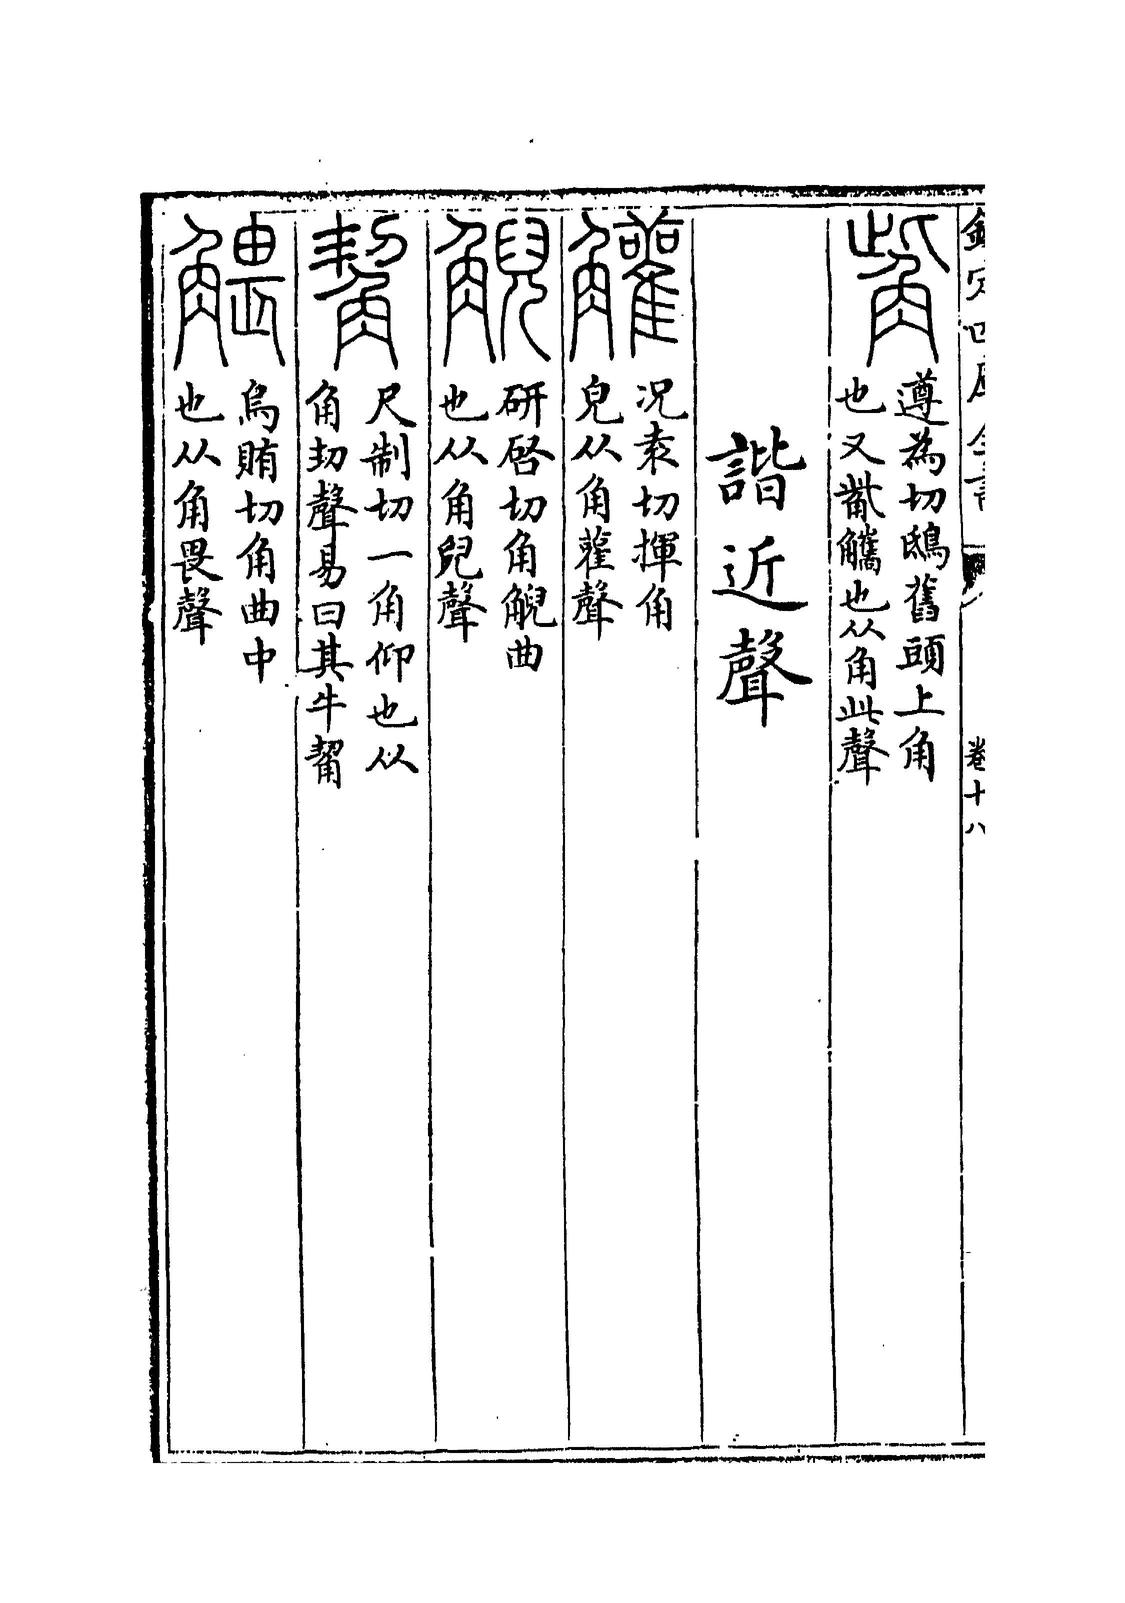 欽定四庫全書
卷十八
觜
遵為切鴟舊頭上角
也又觜觿也从角此聲
諧近聲
䚭
況袁切揮角
皃从角雚聲
觬
研啓切角觬曲
也从角兒聲
觢
尺制切一角仰也从
角㓞聲易曰其牛觢
䚈
烏賄切角曲中
也从角畏聲